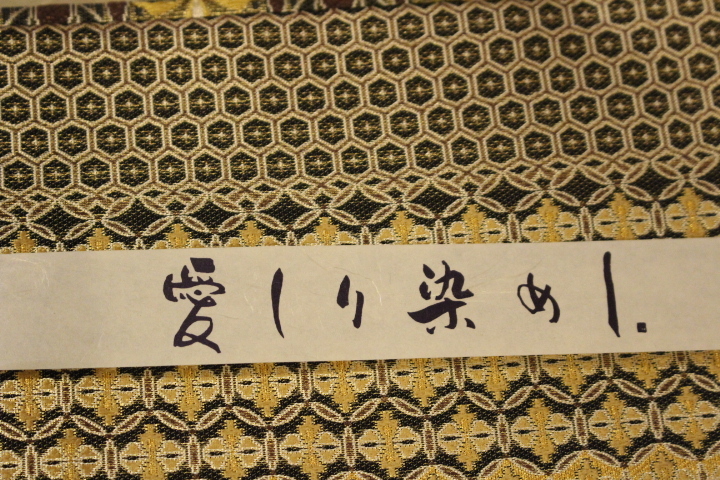 愛しり染めし